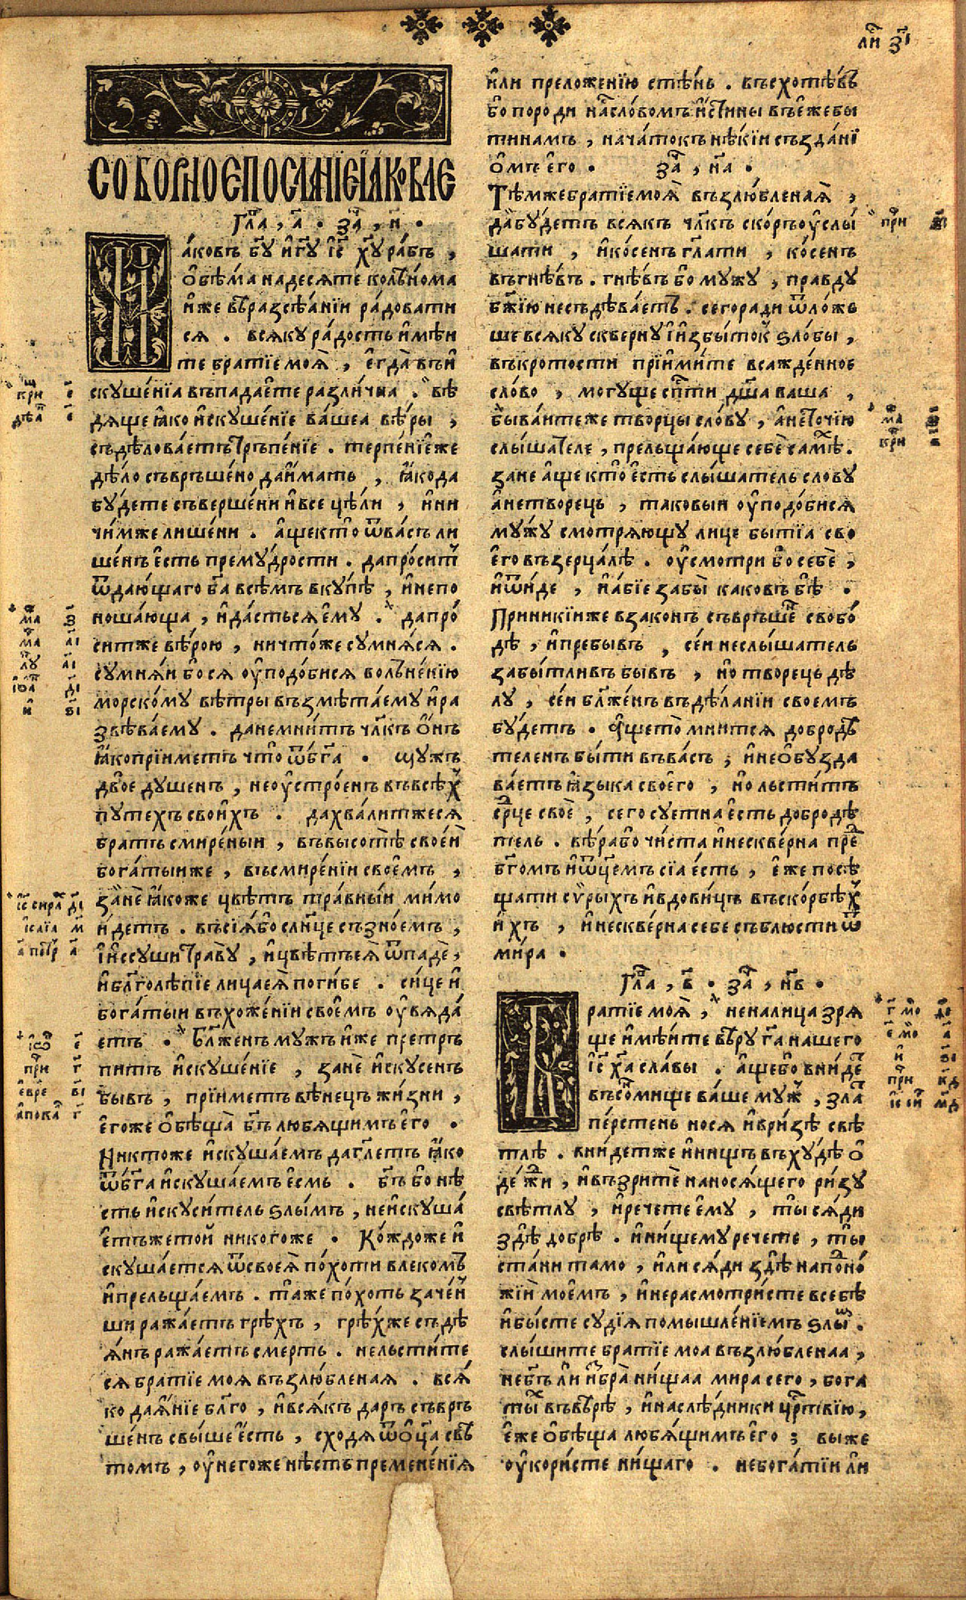 ли҃ з҃і
СОБОРНОЕ ПОСЛАНІЕ ІАКОВЛЕ
Гла҃ , а҃ . За҃ , н҃ .
Иаковъ бг҃у и гд҃у іс҃ хр҃у рабъ ,
обѣма надесяте колѣнома
иже в̾ разсѣаніи радовати
ся . всяку радость имѣи
те братіе моя , егда въ и
скушеніа въпадаете различна . вѣ
дяще ꙗко искушеніе вашеа вѣры ,
съдѣловаетъ трьпѣніе . терпеніе же
дѣло съвръшено да имать , ꙗко да
будете съвершени и все цѣли , и ни
чимже лишени . аще кто ѿ васъ ли
шенъ есть премудрости . да проситъ
ѿ дающаго бг҃а всѣмъ вкупѣ , и не по
ношающа , и дасться ему . да про
ситже вѣрою , ничтоже сумняся .
сумняи бо ся уподобися волъненію
морскому вѣтры възмѣтаему и ра
звѣваему . да не мнитъ чл҃къ онъ
ꙗко пріиметъ что ѿ бг҃а . мужъ
двое душенъ , неустроенъ въ всѣх
путехъ своихъ . да хвалитжеся
братъ смиреныи , въ высотѣ своеи
богатыи же , въ смиреніи своемъ ,
зане ꙗкоже цвѣтъ травныи мимо
идетъ . въсіа бо слн҃це съ зноемъ ,
и исъсуши траву , и цвѣтъ ея ѿпаде ,
и благолѣпіе лица ея погибе . сице и
богатыи въ хоженіи своемъ увяда
етъ . Бл҃женъ мужъ иже претръ
питъ искушеніе , зане искусенъ
бывъ , пріиметъ вѣнець жизни ,
егоже обѣща бг҃ъ любящимъ его .
Никтоже искушаемъ да гл҃етъ ꙗко
ѿ бг҃а искушаемъ есмь . бг҃ъ бо нѣ
сть искуситель ѕлымъ , не искуша
етъ же той никогоже . Кождоже и
скушается ѿ своея похоти влекомъ
и прельщаемъ . таже похоть зачен
ши ражаетъ грѣхъ , грѣхже съдѣ
янъ ражаетъ смерть . не льстите
ся братіе моя възлюбленая . вся
ко даяніе бл҃го , и всякъ даръ съвръ
шенъ свыше есть , сходя ѿ оц҃а свѣ
томъ , у негоже нѣсть премененія
или преложенію стѣнь . въсхотѣвъ
бо породи насъ словомъ истины въ еже бы
ти намъ , начатокъ нѣкіи създані
омъ его . За҃ , на҃ .
Тѣмже братіе моя възлюбленая ,
да будетъ всякъ чл҃къ скоръ услы
шати , и косенъ гл҃ати , косенъ
въ гнѣвъ . гнѣвъ бо мужу , правду
бж҃ію не съдѣваетъ . сего ради ѿложь
ше всяку скверну и избытокъ ѕлобы ,
въ кротости пріимите всажденное
слово , могуще сп҃сти дш҃а ваша ,
бываитеже творцы слову , а не точію
слышателе , прельщающе себе самѣх .
зане аще кто есть слышатель слову
а не творець , таковыи уподобися
мужу смотряющу лице бытіа сво
его въ зерцалѣ . усмотри бо себе ,
и ѿиде , и абіе забы каковъ бѣ .
Приникіи же в законъ съвръшен свобо
дѣ , и пребывъ , сеи не слышатель
забытливъ бывъ , но творець дѣ
лу , сеи бл҃женъ въ дѣланіи своемъ
будетъ . Аще кто мнится добродѣ
теленъ быти въ васъ ; и не обузда
ваетъ ꙗзыка своего , но льститъ
ср҃це свое , сего суетна есть добродѣ
тель . вѣра бо чиста и несквернa пре
бг҃омъ и ѿц҃емъ сіа есть , еже посѣ
щати сирыхъ и вдовиць въ скорбѣх
ихъ , и нескверна себе съблюсти ѿ
мира .
Гла҃ , в҃ . За҃ , нв҃ .
Братіе моя , не на лица зря
ще имѣите вѣру гд҃а нашего
іс҃ хр҃а славы . аще бо внидет
въ сонмище ваше муж , злат
перстень нося и в ризѣ свѣ
тлѣ . внидетже и нищъ въ худѣ о
дежи , и възрите на носящего ризу
свѣтлу , и речете ему , ты сяди
здѣ добрѣ . и нищему речете , ты
стани тамо , или сяди здѣ на подно
жіи моемъ , и не расмотристе в себѣ
и бысте судія помышленіемъ ѕлым .
слышите братіе моа възлюбленаа ,
не бг҃ъ ли избра нищаа мира сего , бога
ты въ вѣрѣ , и наслѣдники цр҃твію ,
еже обѣща любящимъ его ; вы же
укористе нищаго . не богатіи ли